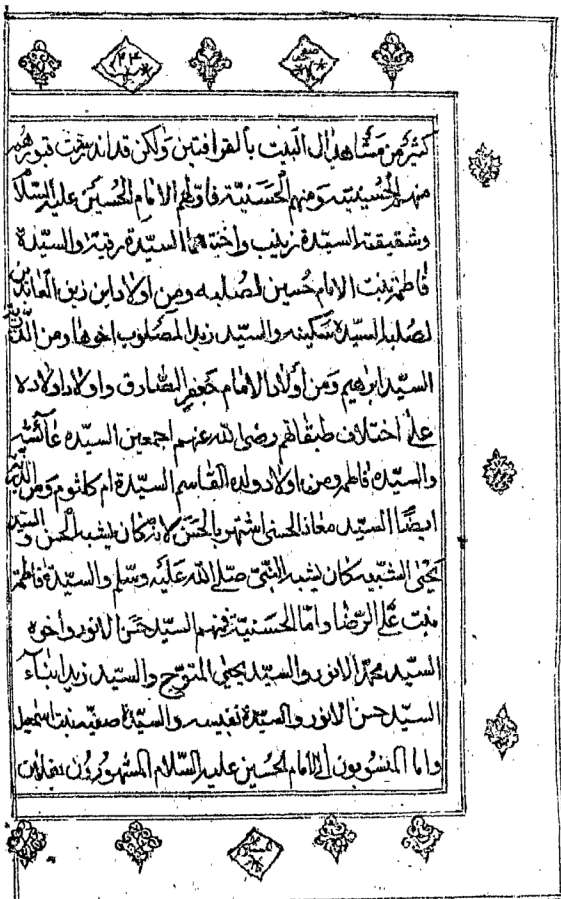 ٢٤
كثير من مشاهد ال البيت بالقرافتين ولكن قد اندرست قبورهم
منهم الحسينية ومنهم الحسنية فاولهم الامام الحسين عليه السلام
وشقيقته السيدة زينب واختهما السيدة رقية والسيدة
فاطمة بنت الامام حسين لصلبه ومن اولاد ابن زين العابدين
لصلبه السيدة سكينه والسيد زيد المصلوب اخوها ومن
السيد ابرهيم ومن اولاد الامام جعفر الصادق واولاد اولاده
على اختلاف طبقاتهم رضى الله عنهم اجمعين السيده عائشه
والسيده فاطمه ومن اولاد ولده القاسم السيدة ام كلثوم ومن
ايضا السيد معاذ الحسنى اشتهر بالحسن لانه كان يشبه الحسن والسيد
يحيى الشبيه كان يشبه النبى صلى الله عليه وسلم والسيدة فاطمة
بنت على الرضا واما الحسنية فمنهم السيد حسن الانور واخوه
السيد محمد الانور والسيد يحيى المتوج والسيد زيد ابناء
السيد حسن الانور والسيدة نفيسه والسيدة صفيه بنت اسمعيل
واما المنسوبون الى الامام الحسين عليه السلام المشهورون